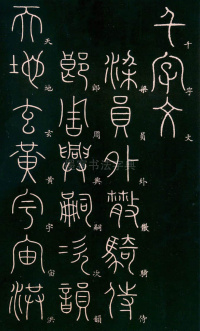 千字文
梁員外散騎侍
郎周興嗣次韻
天地玄黃宇宙洪
书法字典